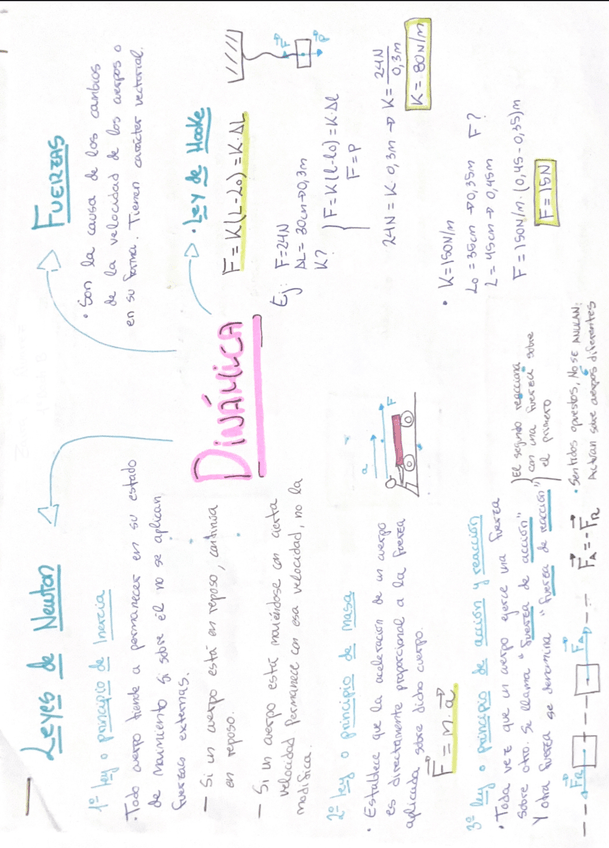 Leyes de Newton
1º ley o principio de Inercia
• Todo cuerpo tiende a permanecer en su estado
de movimiento si sobre él no se aplican
fuerzas externas.
— Si un cuerpo está en reposo, continua
en reposo.
— Si un cuerpo está moviéndose con cierta
velocidad permanece con esa velocidad, no la
modifica.
2º ley o principio de masa
• Establece que la aceleración de un cuerpo
es directamente proporcional a la fuerza
aplicada sobre dicho cuerpo.
F = m·a
a
F
3º ley o principio de acción y reacción
• Toda vez que un cuerpo ejerce una fuerza
sobre otro. Si llama "fuerza de acción"
Y otra fuerza se denomina "fuerza de reacción"
El segundo reacciona
con una fuerza sobre
el primero
FR
FA
FA = -FR
• Sentidos opuestos, NO SE ANULAN:
Actúan sobre cuerpos diferentes
DINÁMICA
FUERZAS
• Son la causa de los cambios
de la velocidad de los cuerpos o
en su forma. Tienen carácter vectorial.
• Ley de Hooke
F = K(L-L0) = K·ΔL
F
P
Ej: F=24N
ΔL = 30cm→0,3m
K?
F=K(l-l0)=K·Δl
F=P
24N = K·0,3m → K = 24N / 0,3m
K = 80N/m
• K=150N/m
L0 = 35cm → 0,35m F?
L = 45cm → 0,45m
F = 150N/m·(0,45-0,35)m
F=15N